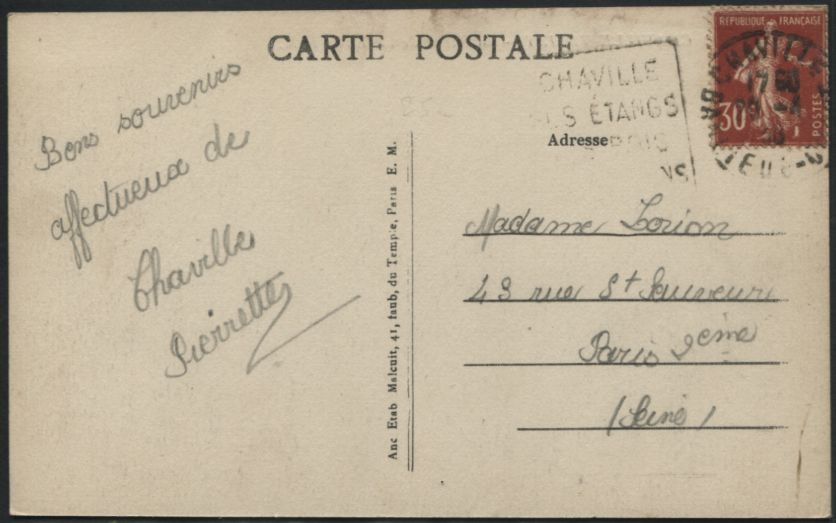 CARTE POSTALE
Bons souvenirs
affectueux de
Chaville
Pierrette
Anc Etab Malcuit, 41, faub. du Temple, Paris E. M.
CHAVILLE
SES ÉTANGS
BOIS
Adresse
RÉPUBLIQUE FRANÇAISE
30
POSTES
CHAVILLE
17
Madame Lorion
43 rue St Sauveur
Paris 2eme
(Seine)